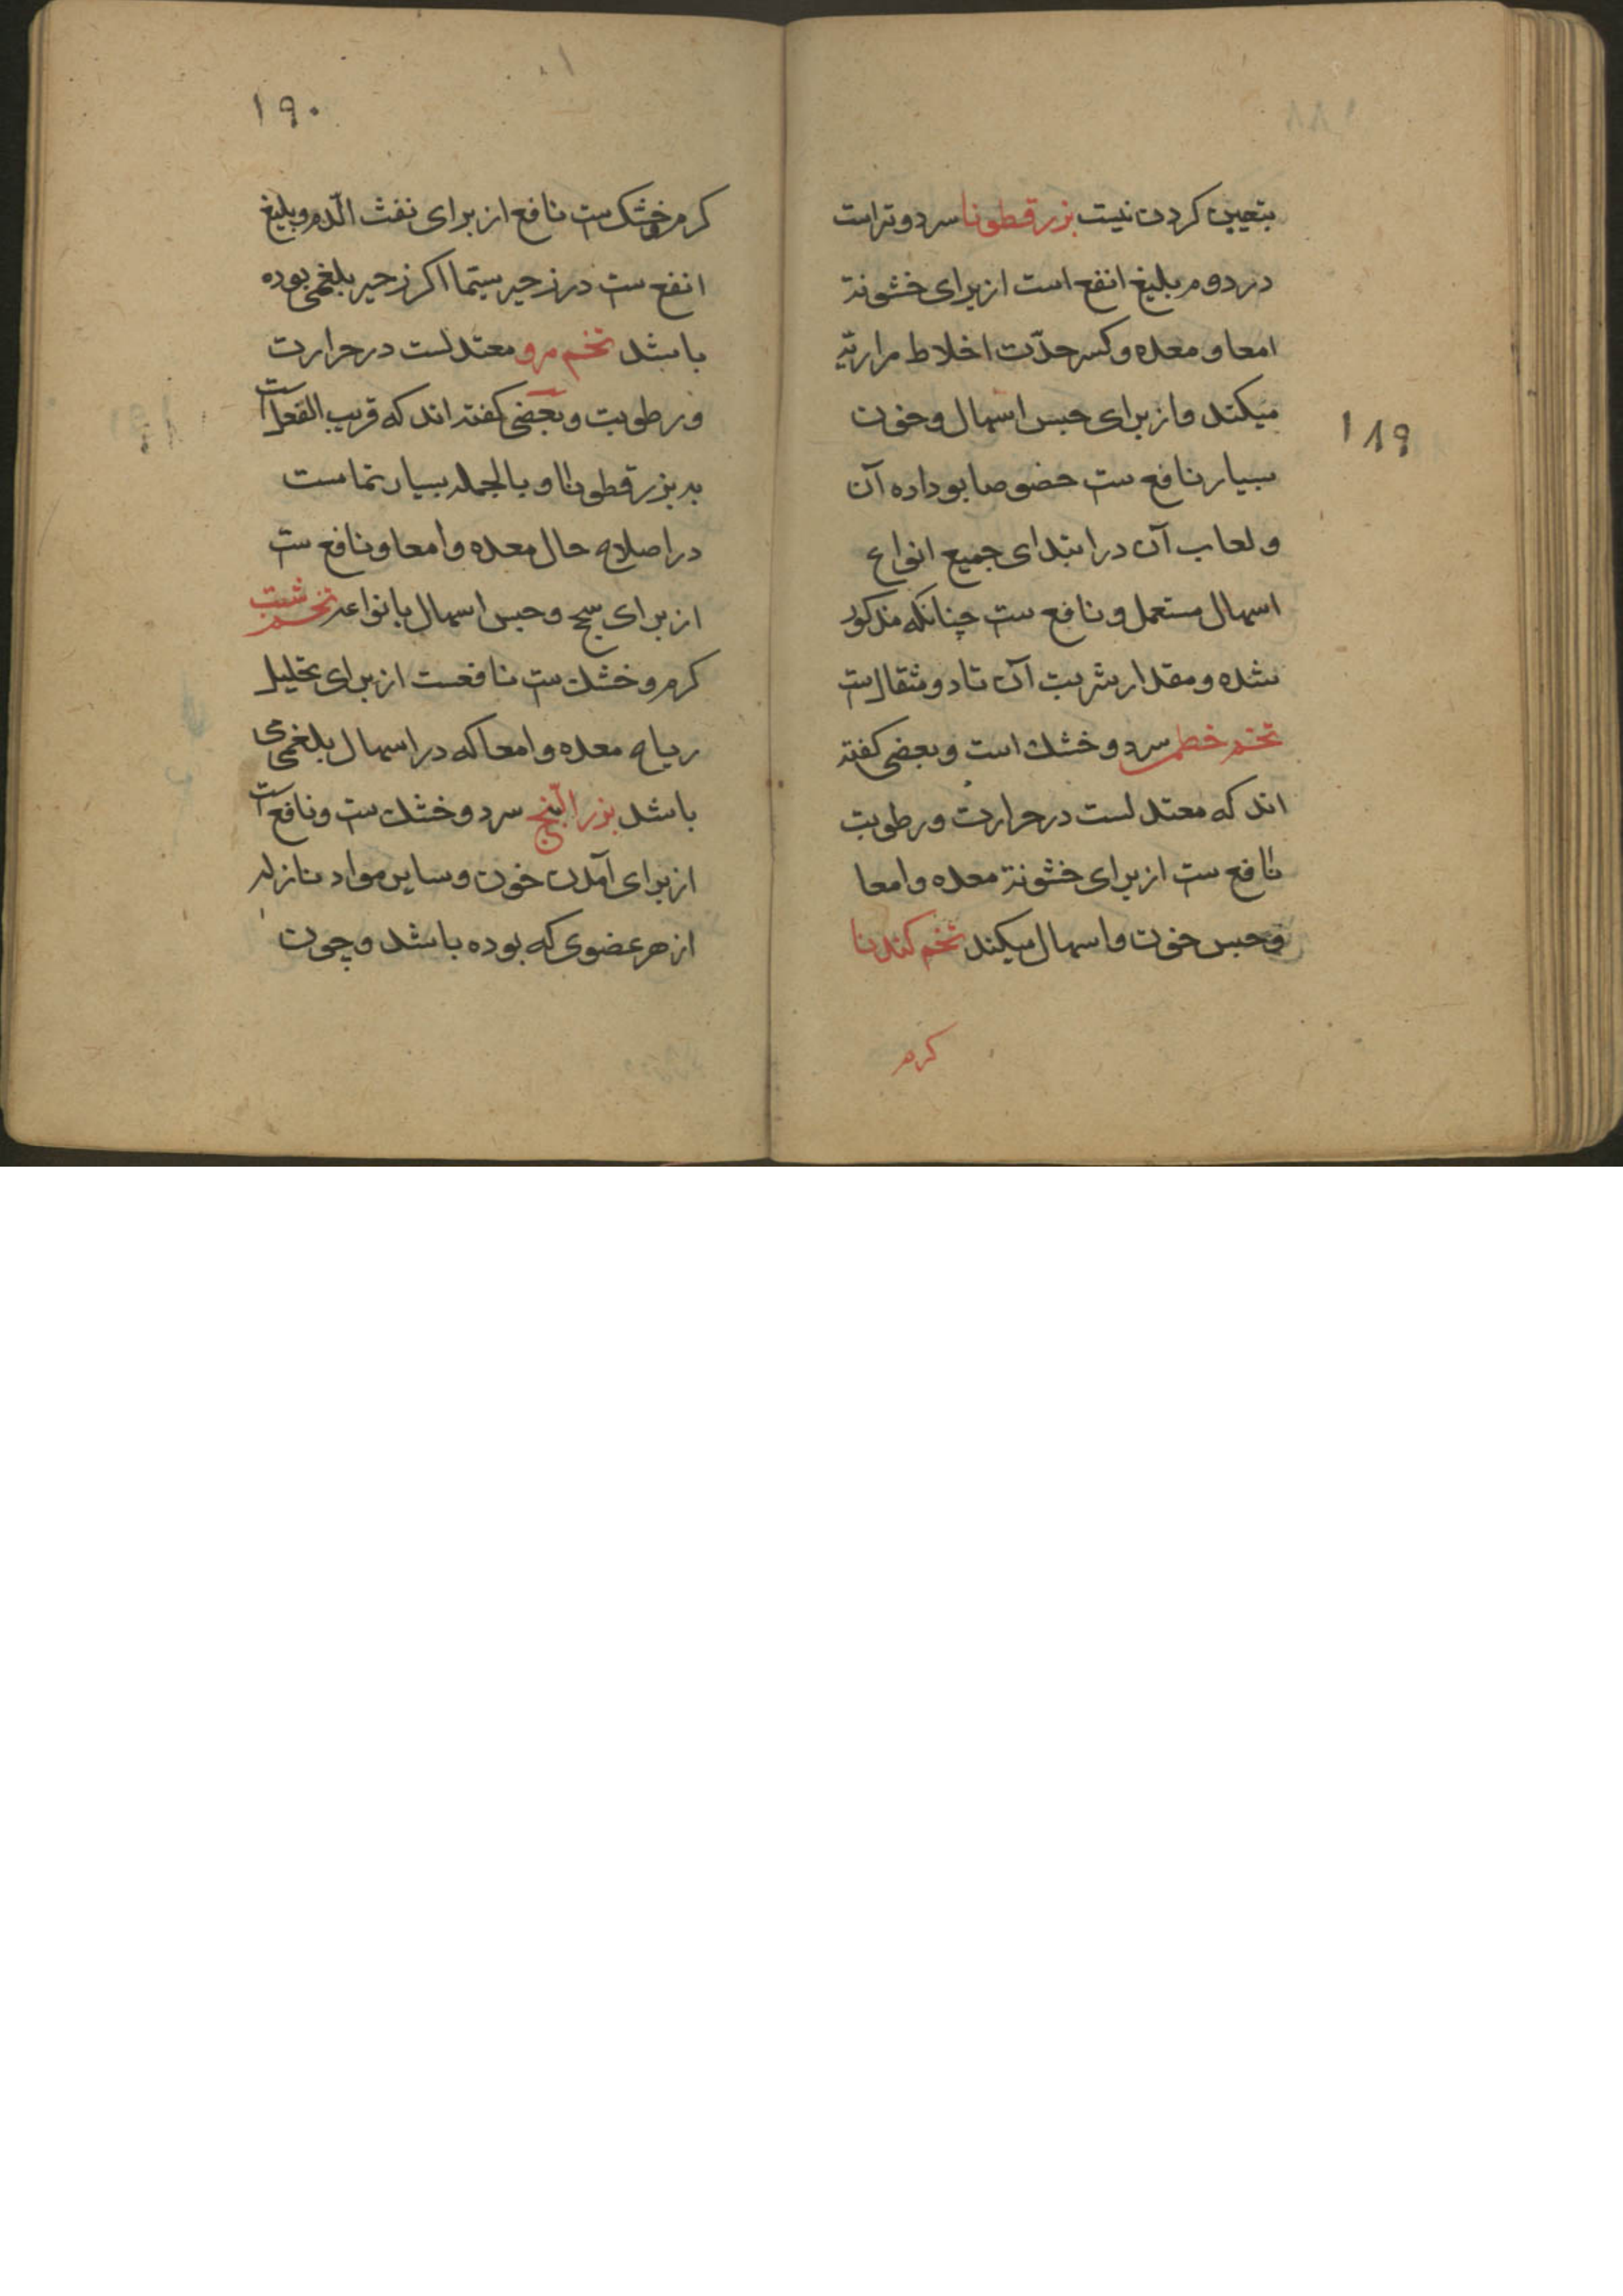 ۱۸۹
بتعیین کردن نیست بزر قطونا سرد و تر است
در دوم بلیغ انفع است از برای خشونة
امعا و معده و کسر حدّت اخلاط مراریّه
میکند و از برای حبس اسهال و خون
بسیار نافع ست خصوصا بو داده آن
و لعاب آن در ابتدای جمیع انواع
اسهال مستعمل و نافع ست چنانکه مذکور
شده و مقدار شربت آن تا دو مثقال ست
تخم خطمی سرد و خشك است و بعضی کفته
اند که معتدلست در حرارت و رطوبت
نافع ست از برای خشونة معده و امعا
و حبس خون و اسهال میکند تخم کندنا
کرم
۱۹۰
کرم و خشک ست نافع از برای نفث الدّم و بلیغ
انفع ست در زحیر سیّما اکر زحیر بلغمی بوده
باشد تخم مرو معتدلست در حرارت
و رطوبت و بعضی کفته اند که قریب الفعل است
به بزر قطونا و بالجمله بسیار
در اصلاح حال معده و امعا و نافع ست
از برای سحج و حبس اسهال بانواعه تخم شبت
کرم و خشك ست نافعست از برای تحلیل
ریاح معده و امعا که در اسهال بلغمی
باشد بزر البنج سرد و خشك ست و نافع است
از برای آمدن خون و سایر مواد نازله
از هر عضوی که بوده باشد و چون